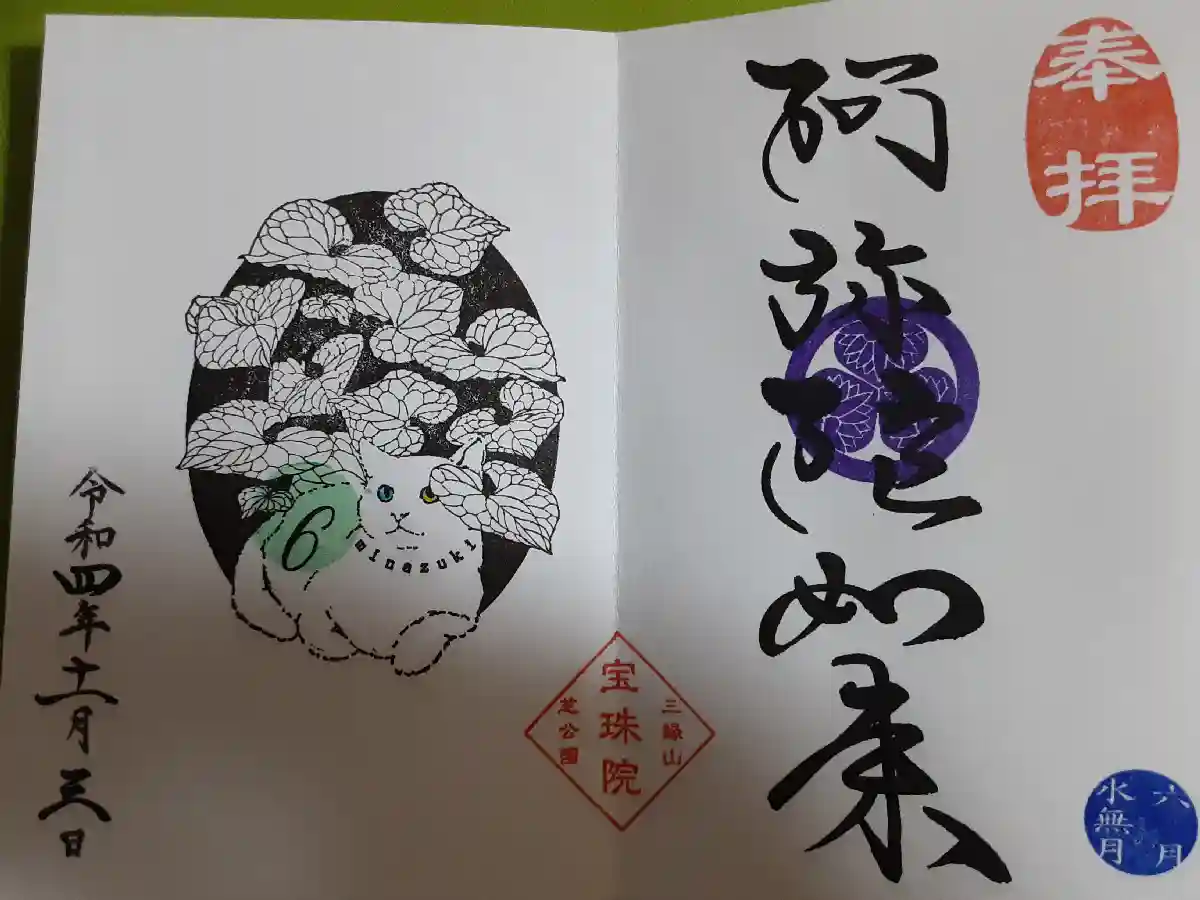 奉拝
阿弥陀如来
六月
水無月
三緑山
宝珠院
芝公園
6
minazuki
令和四年十一月三日